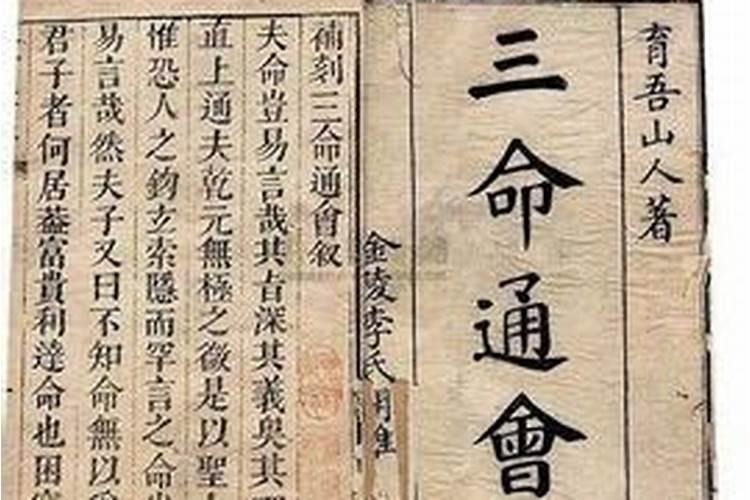 育吾山人著
三命通會
金陵李氏
補刻三命通會叙
夫命豈易言哉其旨深其義奥其
直上通夫乾元無極之微是以聖
惟恐人之鈞玄索隱而罕言之命
易言哉然夫子又曰不知命無以
君子者何居葢富貴利達命也困